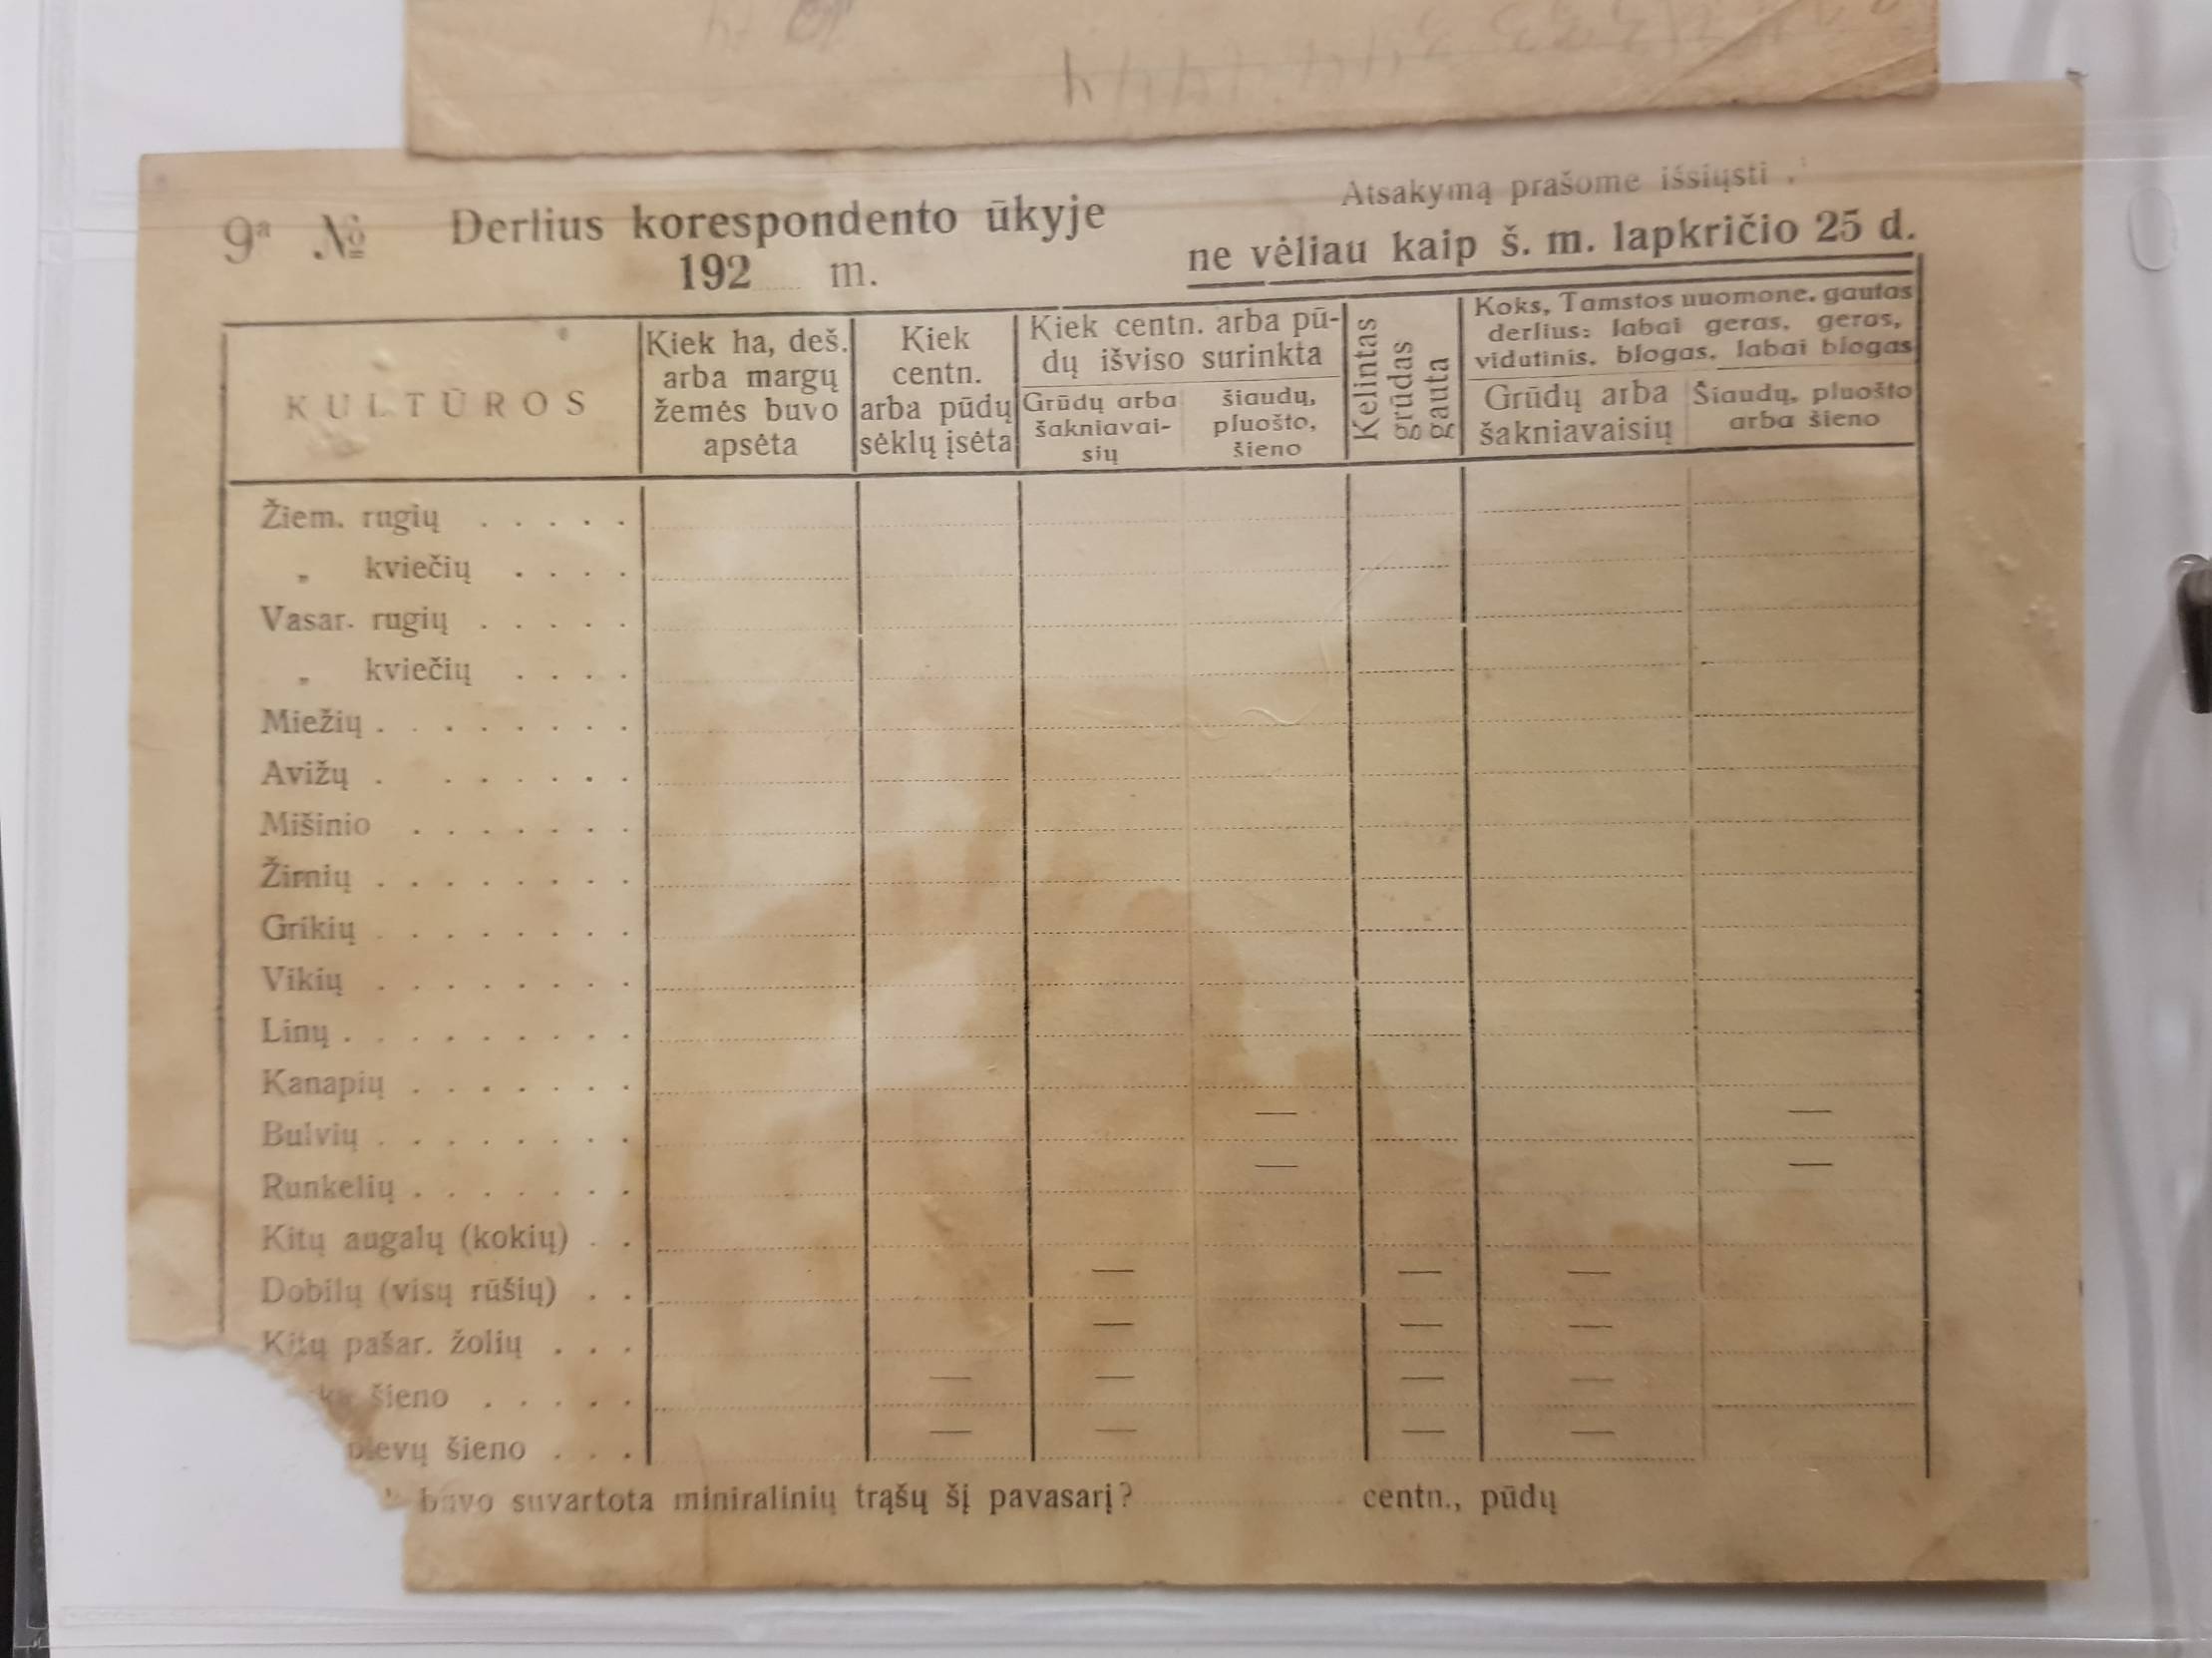 9ª № Derlius korespondento ūkyje
192 m.
Atsakymą prašome išsiųsti
ne vėliau kaip š. m. lapkričio 25 d.
KULTŪROS
Kiek ha, deš.
arba margų
žemės buvo
apsėta
Kiek
centn.
arba pūdų
sėklų įsėta
Kiek centn. arba pū-
dų išviso surinkta
Grūdų arba
šakniavai-
sių
šiaudų,
pluošto,
šieno
Kelintas
grūdas
gauta
Koks, Tamstos nuomone, gautas
derlius: labai geras, geras,
vidutinis, blogas, labai blogas
Grūdų arba
šakniavaisių
Šiaudų, pluošto
arba šieno
Žiem. rugių . . . . .
„ kviečių . . . .
Vasar. rugių . . . . .
„ kviečių . . . .
Miežių . . . . . . . .
Avižų . . . . . . .
Mišinio . . . . . . .
Žirnių . . . . . . . .
Grikių . . . . . . . .
Vikių . . . . . . . .
Linų . . . . . . . . .
Kanapių . . . . . . .
Bulvių . . . . . . . . — —
Runkelių . . . . . . . — —
Kitų augalų (kokių) . .
Dobilų (visų rūšių) . . — — —
Kitų pašar. žolių . . . — — —
šieno . . . . . — — — —
pievų šieno . . . — — — —
buvo suvartota miniralinių trąšų šį pavasarį? centn., pūdų